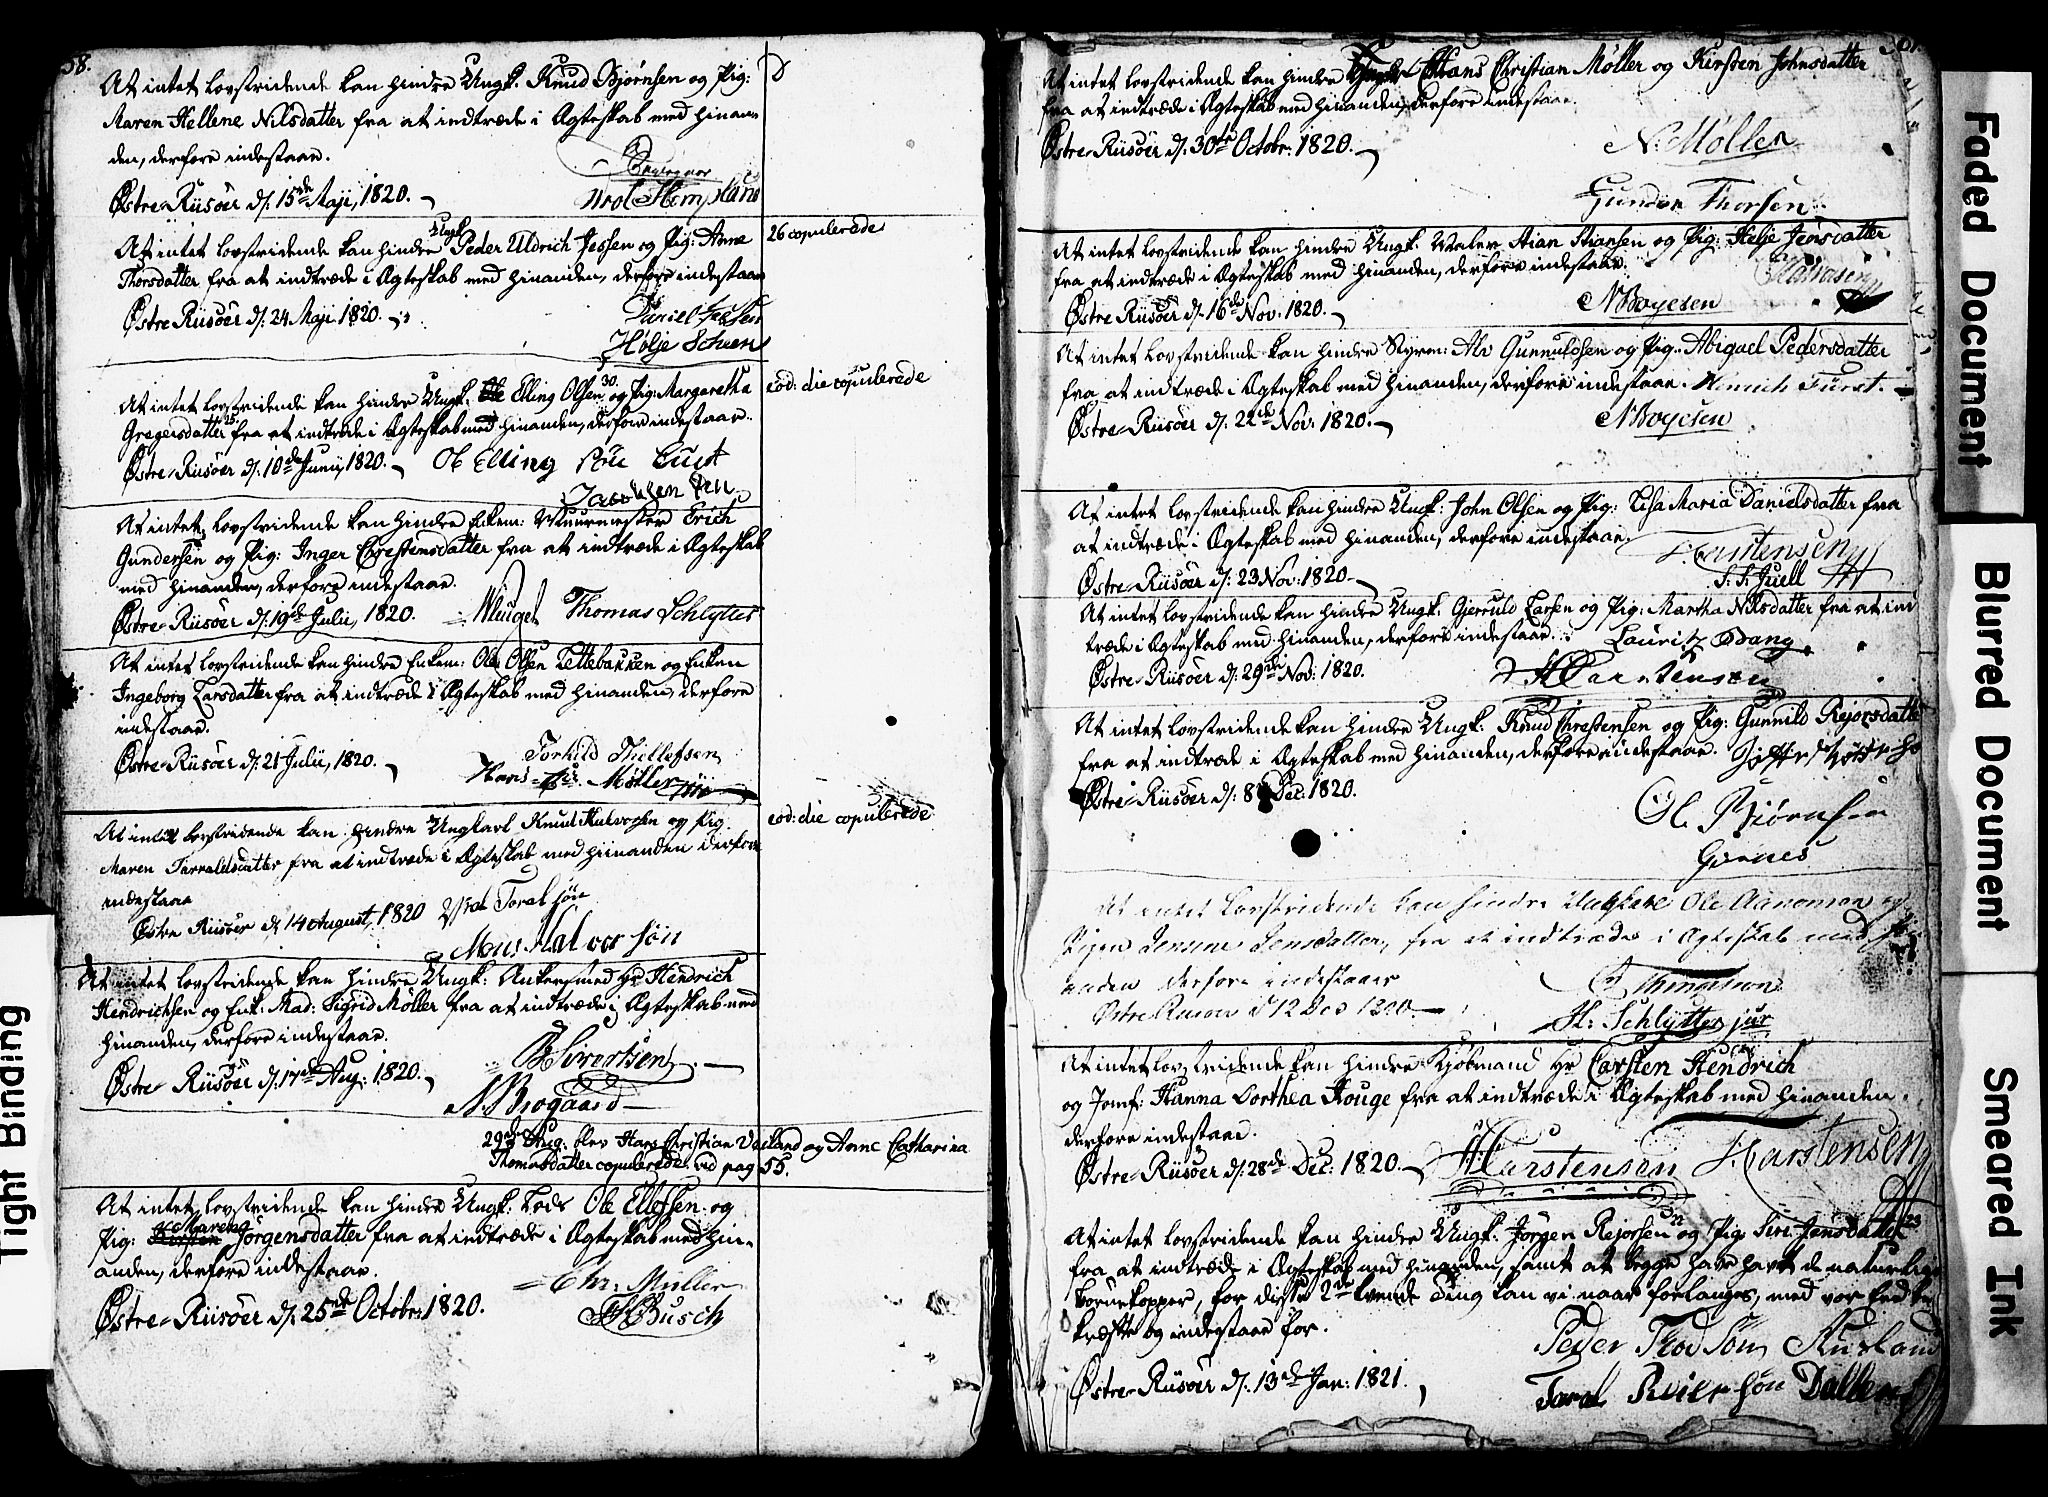 58.
At intet lovstridende kan hindre Ungk. Knud Bjørnsen og Pig:
Maren Hellene Nilsdatter fra at indtræde i Ægteskab med hinan-
den, derfore indestaae.
Østre-Riisöer d: 15de Maji, 1820.
Ungk
At intet lovstridende kan hindre Peder Uldrich Jessen og Pig: Anne
Thorsdatter fra at indtræde i Ægteskab med hinanden, derfore indestaae
Østre Riisöer d: 24 Maji 1820.
Daniel Jessen
Holje Schuen
26 copulerede
At intet lovstridende kan hindre Ungk. Elling Olsen 30. og Pig: Margaretha
Gregersdatter 25 fra at indtræde i Ægteskab med hinanden, derfore indestaae.
Østre-Riisöer d: 10de Junij 1820.
eod: die copulerede
At intet lovstridende kan hindre Enkem: Muurmester Erich
Gundersen og Pig: Inger Chrestensdatter fra at indtræde i Ægteskab
med hinanden, derfore indestaae.
Østre-Riisöer d: 19de Julii, 1820.
Thomas Schlytter
At intet lovstridende kan hindre Enkem: Ole Olsen Lettebakken og Enken
Ingeborg Larsdatter fra at indtræde i Ægteskab med hinanden, derfore
indestaae.
Østre-Riisöer d: 21 Julii, 1820.
Torkild Thellefsen
Hans Chr. Möller
At intet lovstridende kan hindre Ungkarl Knud Halvorsen og Pig
Maren Tarraldsdatter fra at indtræde i Ægteskab med hiinanden derfore
indestaae
Østre Riisöer d: 14 August, 1820
Toralsön
Mons Halvorsön
eod: die copulerede
At intet lovstridende kan hindre Ungk: Ankersmed Hr Hendrich
Hendrichsen og Enk: Mad: Sigrid Møller fra at indtræde i Ægteskab med
hinanden, derfore indestaae.
Østre-Riisöer d: 17de Aug: 1820.
Sivertsen
N. Brogaard
29de Aug: blev Hans Christian Veiland og Anne Catharina
Thomasdatter copulerede. vid pag 55.
At intet lovstridende kan hindre Ungk: Lods Ole Ellefsen og
Maren
Pig: Kirsten Jörgensdatter fra at indtræde i Ægteskab med hin-
anden, derfore indestaae.
Østre-Riisöer d: 25de Octobr: 1820.
Chr. Müller
Busch
At intet lovstridende kan hindre Hans Christian Møller og Kirsten Johnsdatter
fra at indtræde i Ægteskab med hinanden, derfore indestaae.
Østre-Riisöer d: 30te Octobr: 1820.
N. Møller
Gunder Thorsen
At intet lovstridende kan hindre Ungk. Stian Stiansen og Pig: Helje Jensdatter
fra at indtræde i Ægteskab med hinanden, derfore indestaae.
Østre Riisöer d: 16de Nov: 1820.
N Boyesen
At intet lovstridende kan hindre Alv Gunnuldsen og Pig: Abigael Pedersdatter
fra at indtræde i Ægteskab med hinanden, derfore indestaae. Henrich Fürst.
Østre-Riisöer d: 22de Nov: 1820.
N Boyesen
At intet lovstridende kan hindre Ungk: John Olsen og Pig: Lisa Maria Danielsdatter fra
at indtræde i Ægteskab med hinanden, derfore indestaae.
Østre-Riisöer d: 23 Nov: 1820
H. Carstensen
S. S. Juell
At intet lovstridende kan hindre Ungk: Gjeruld Larsen og Pig: Martha Nilsdatter fra at ind
træde i Ægteskab med hinanden, derfore indestaae.
Lauritz Bang
Østre-Riisöer d: 29de Nov: 1820.
H Carstensen
At intet lovstridende kan hindre Ungk: Knud Chrestensen og Pig: Gunnild Rejorsdatter
fra at indtræde i Ægteskab med hinanden, derfore indestaae.
Østre-Riisöer d: 8de Dec: 1820.
Ol. Bjørnsen
Giernes
At intet lovstridende kan hindre Ungkarl Ole Aanonsen og
Pigen Jensine Jensdatter, fra at indtræde i Ægteskab med hin-
anden derfore indestaaer
Østre Riisöer d 12 Dec 1820
Thomassen
H: Schlytter jur
At intet lovstridende kan hindre Kjøbmand Hr Carsten Hendrich
og Jomf: Hanna Dorthea Houge fra at indtræde i Ægteskab med hinanden.
derfore indestaae.
Østre-Riisöer d: 28de Dec: 1820.
H Carstensen
H. Carstensen
At intet lovstridende kan hindre Ungk: Jørgen Rejorsen og Pig: Siri Jensdatter 23
fra at indtræde i Ægteskab med hinanden, samt at begge have havt de naturlige
Børnekopper, for disse 2de kan vi naar forlanges, med vor Eed be
kræfte og indestaae for.
Østre-Riisöer d: 13de Jan: 1821.
Peder
Taral Reiersön
Faded Document
Blurred Document
Smeared Ink
Tight Binding